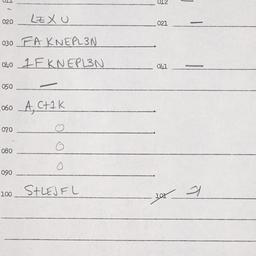 012
020 LEXU 021 —
030 FA KNEPL3N
040 1FKNEPL3N 041 —
050 —
060 A, C+1K
070 0
080 0
090 0
100 S+LEJFL 101